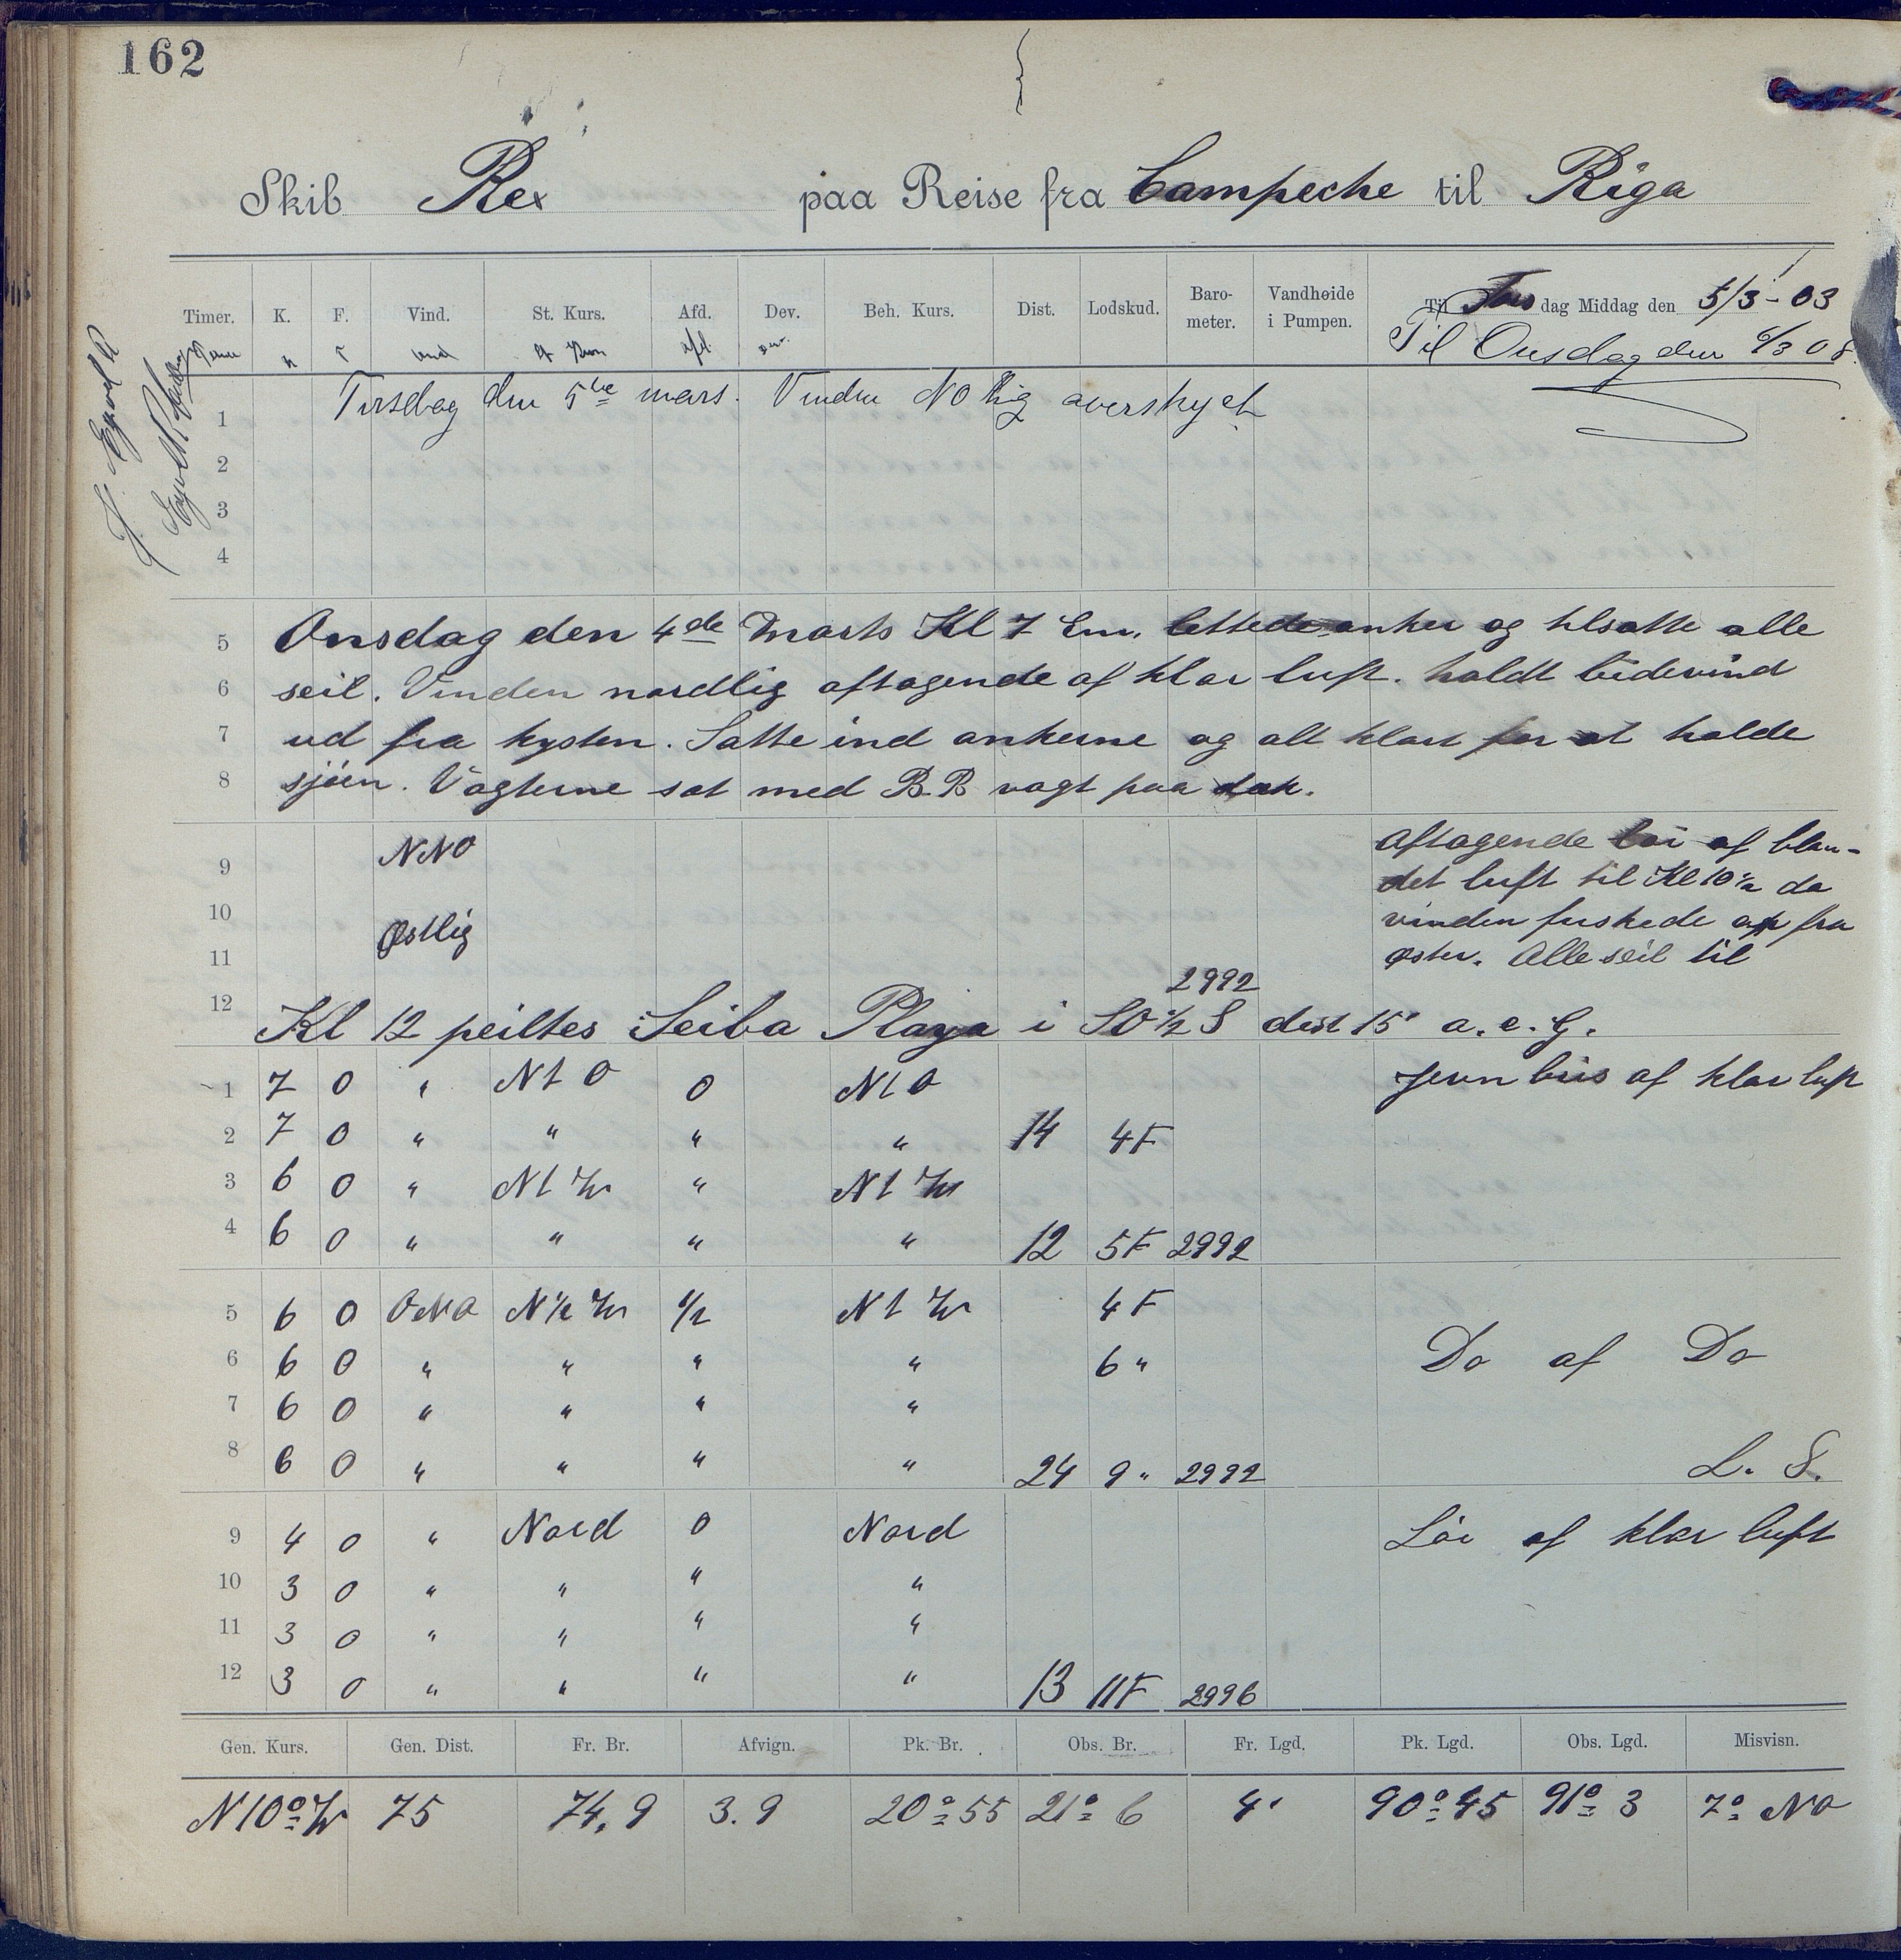 162
Skib Rex paa Reise fra Campeche til Riga
Timer. K. F. Vind. St. Kurs. Afd. Dev. Beh. Kurs. Dist. Lodskud. Baro-meter. Vandhøide i Pumpen. Til Torsdag Middag den 5/3 - 03
Til Onsdag den 6/3 08.
1 Tirsdag den 5te mars. Vinden NOlig overskyet
2
3
4
5 Onsdag den 4de Marts Kl 7 Em. lettede anker og tilsatte alle
6 seil. Vinden nordlig aftagende af klar luft. holdt bidevind
7 ud fra kysten. Satte ind ankerne og alt klart for at holde
8 sjöen. Vagterne sat med B.B vagt paa dæk.
9 NNO aftagende löi af blan-
det luft til Kl 10½ da
10 Østlig vinden friskede op fra
11 øster. Alle seil til
2992
12 Kl 12 peiltes Seiba Playa i SO½S dist 15' a. e. G.
1 7 0 " N t O 0 N t O Jevn bris af klar luft
2 7 0 " " " " 14 4F
3 6 0 " N t W " N t W
4 6 0 " " " " 12 5F 2992
5 6 0 ONO N½W 1/2 N t W 4F
6 6 0 " " " " 6 " Do af Do
7 6 0 " " " "
8 6 0 " " " " 24 9 " 2992 L. S.
9 4 0 " Nord 0 Nord Löi af klar luft
10 3 0 " " " "
11 3 0 " " " "
12 3 0 " " " " 13 11F 2996
Gen. Kurs. Gen. Dist. Fr. Br. Afvign. Pk. Br. Obs. Br. Fr. Lgd. Pk. Lgd. Obs. Lgd. Misvisn.
N10°W 75 74,9 3.9 20°55 21°6 4' 90°45 91°3 7° NO